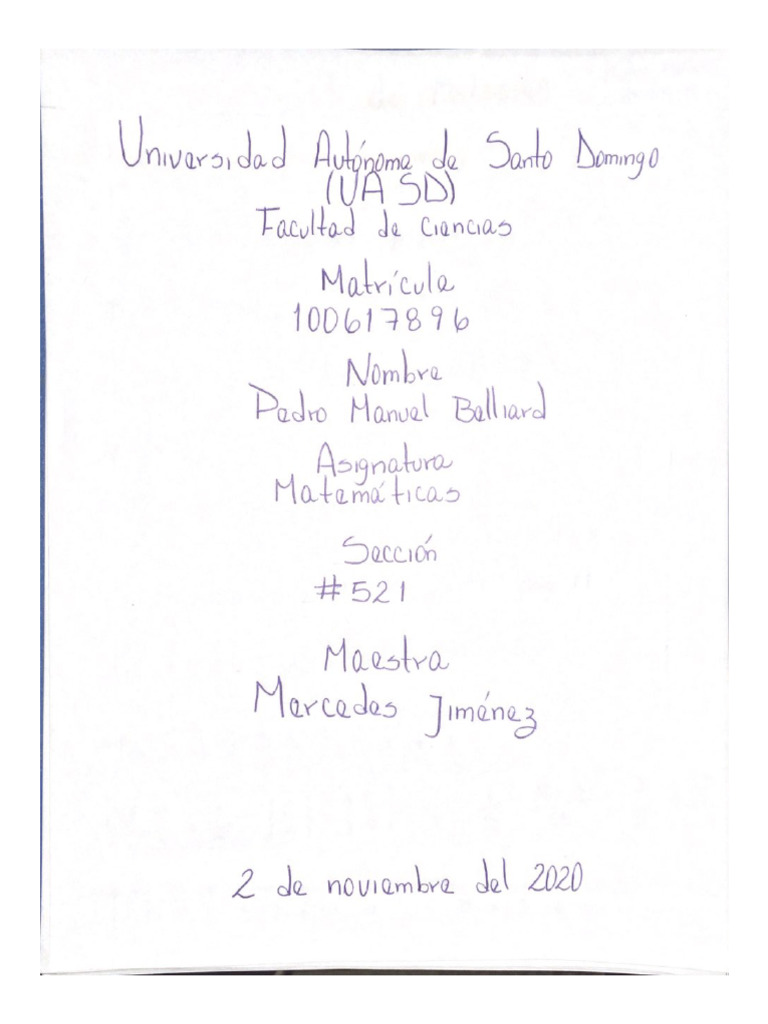 Universidad Autónoma de Santo Domingo
(UASD)
Facultad de Ciencias
Matrícula
100617896
Nombre
Pedro Manuel Belliard
Asignatura
Matemáticas
Sección
#521
Maestra
Mercedes Jiménez
2 de noviembre del 2020